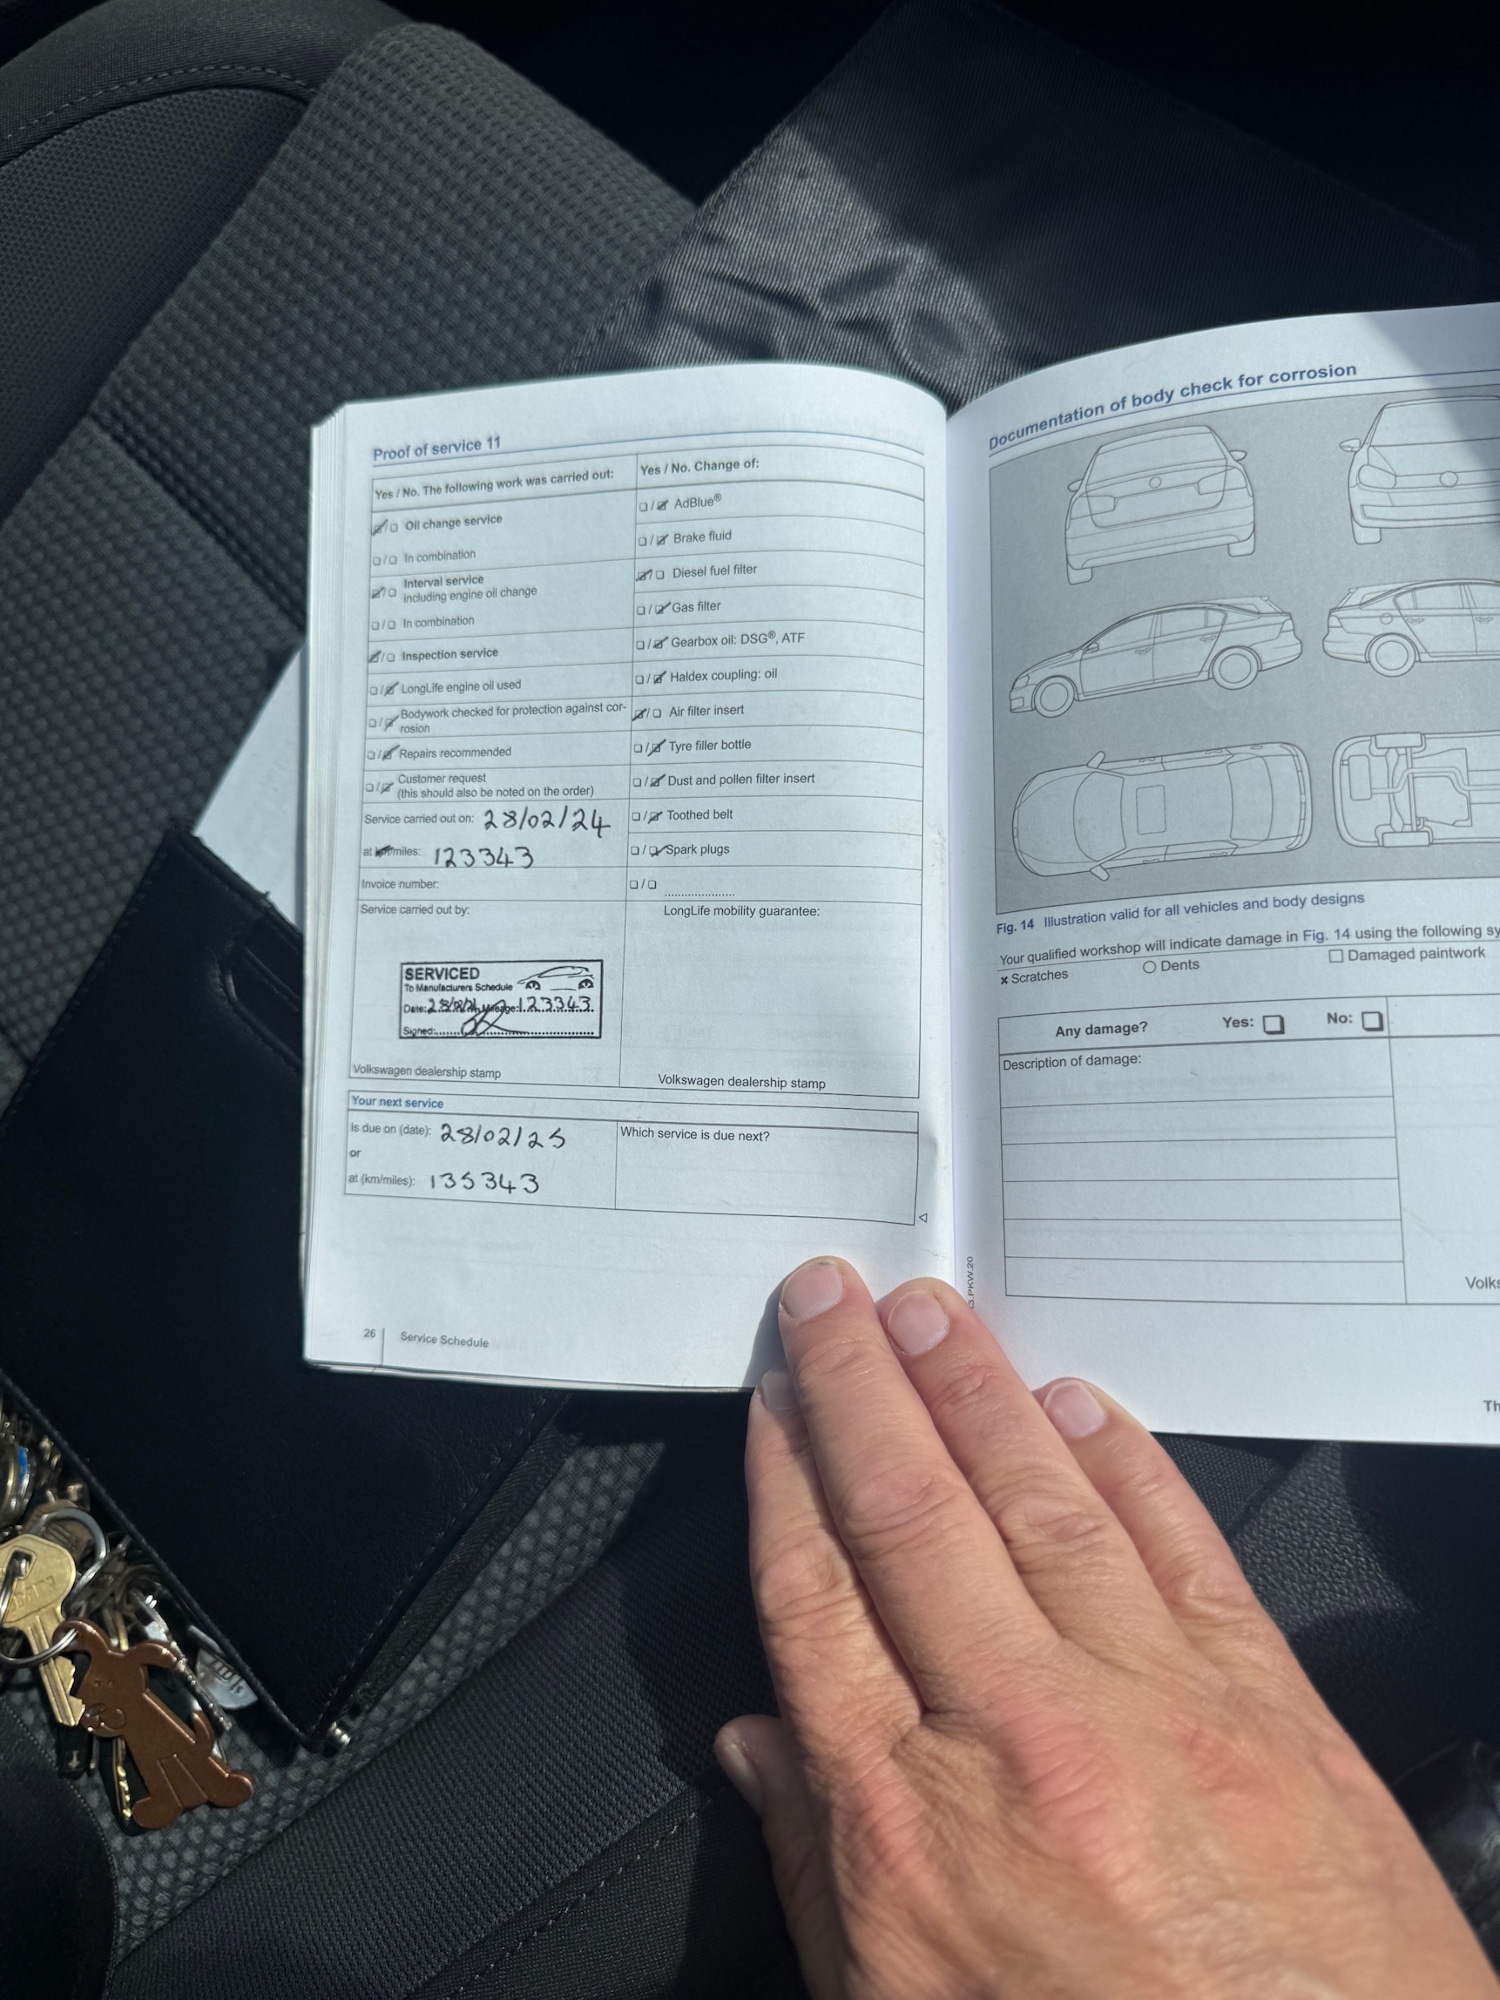 Proof of service 11
Yes / No. The following work was carried out:
Oil change service
In combination
Interval service
including engine oil change
In combination
Inspection service
LongLife engine oil used
Bodywork checked for protection against cor-
rosion
Repairs recommended
Customer request
(this should also be noted on the order)
Service carried out on: 28/02/24
at km/miles: 123343
Invoice number:
Service carried out by:
SERVICED
To Manufacturers Schedule
Date: 28/02/24 Mileage: 123343
Signed:
Volkswagen dealership stamp
Yes / No. Change of:
AdBlue®
Brake fluid
Diesel fuel filter
Gas filter
Gearbox oil: DSG®, ATF
Haldex coupling: oil
Air filter insert
Tyre filler bottle
Dust and pollen filter insert
Toothed belt
Spark plugs
LongLife mobility guarantee:
Volkswagen dealership stamp
Your next service
Is due on (date): 28/02/25
or
at (km/miles): 135343
Which service is due next?
26 Service Schedule
Documentation of body check for corrosion
Fig. 14 Illustration valid for all vehicles and body designs
Your qualified workshop will indicate damage in Fig. 14 using the following sy
× Scratches
Dents
Damaged paintwork
Any damage? Yes: No:
Description of damage:
Volks
Th
3.PKW.20